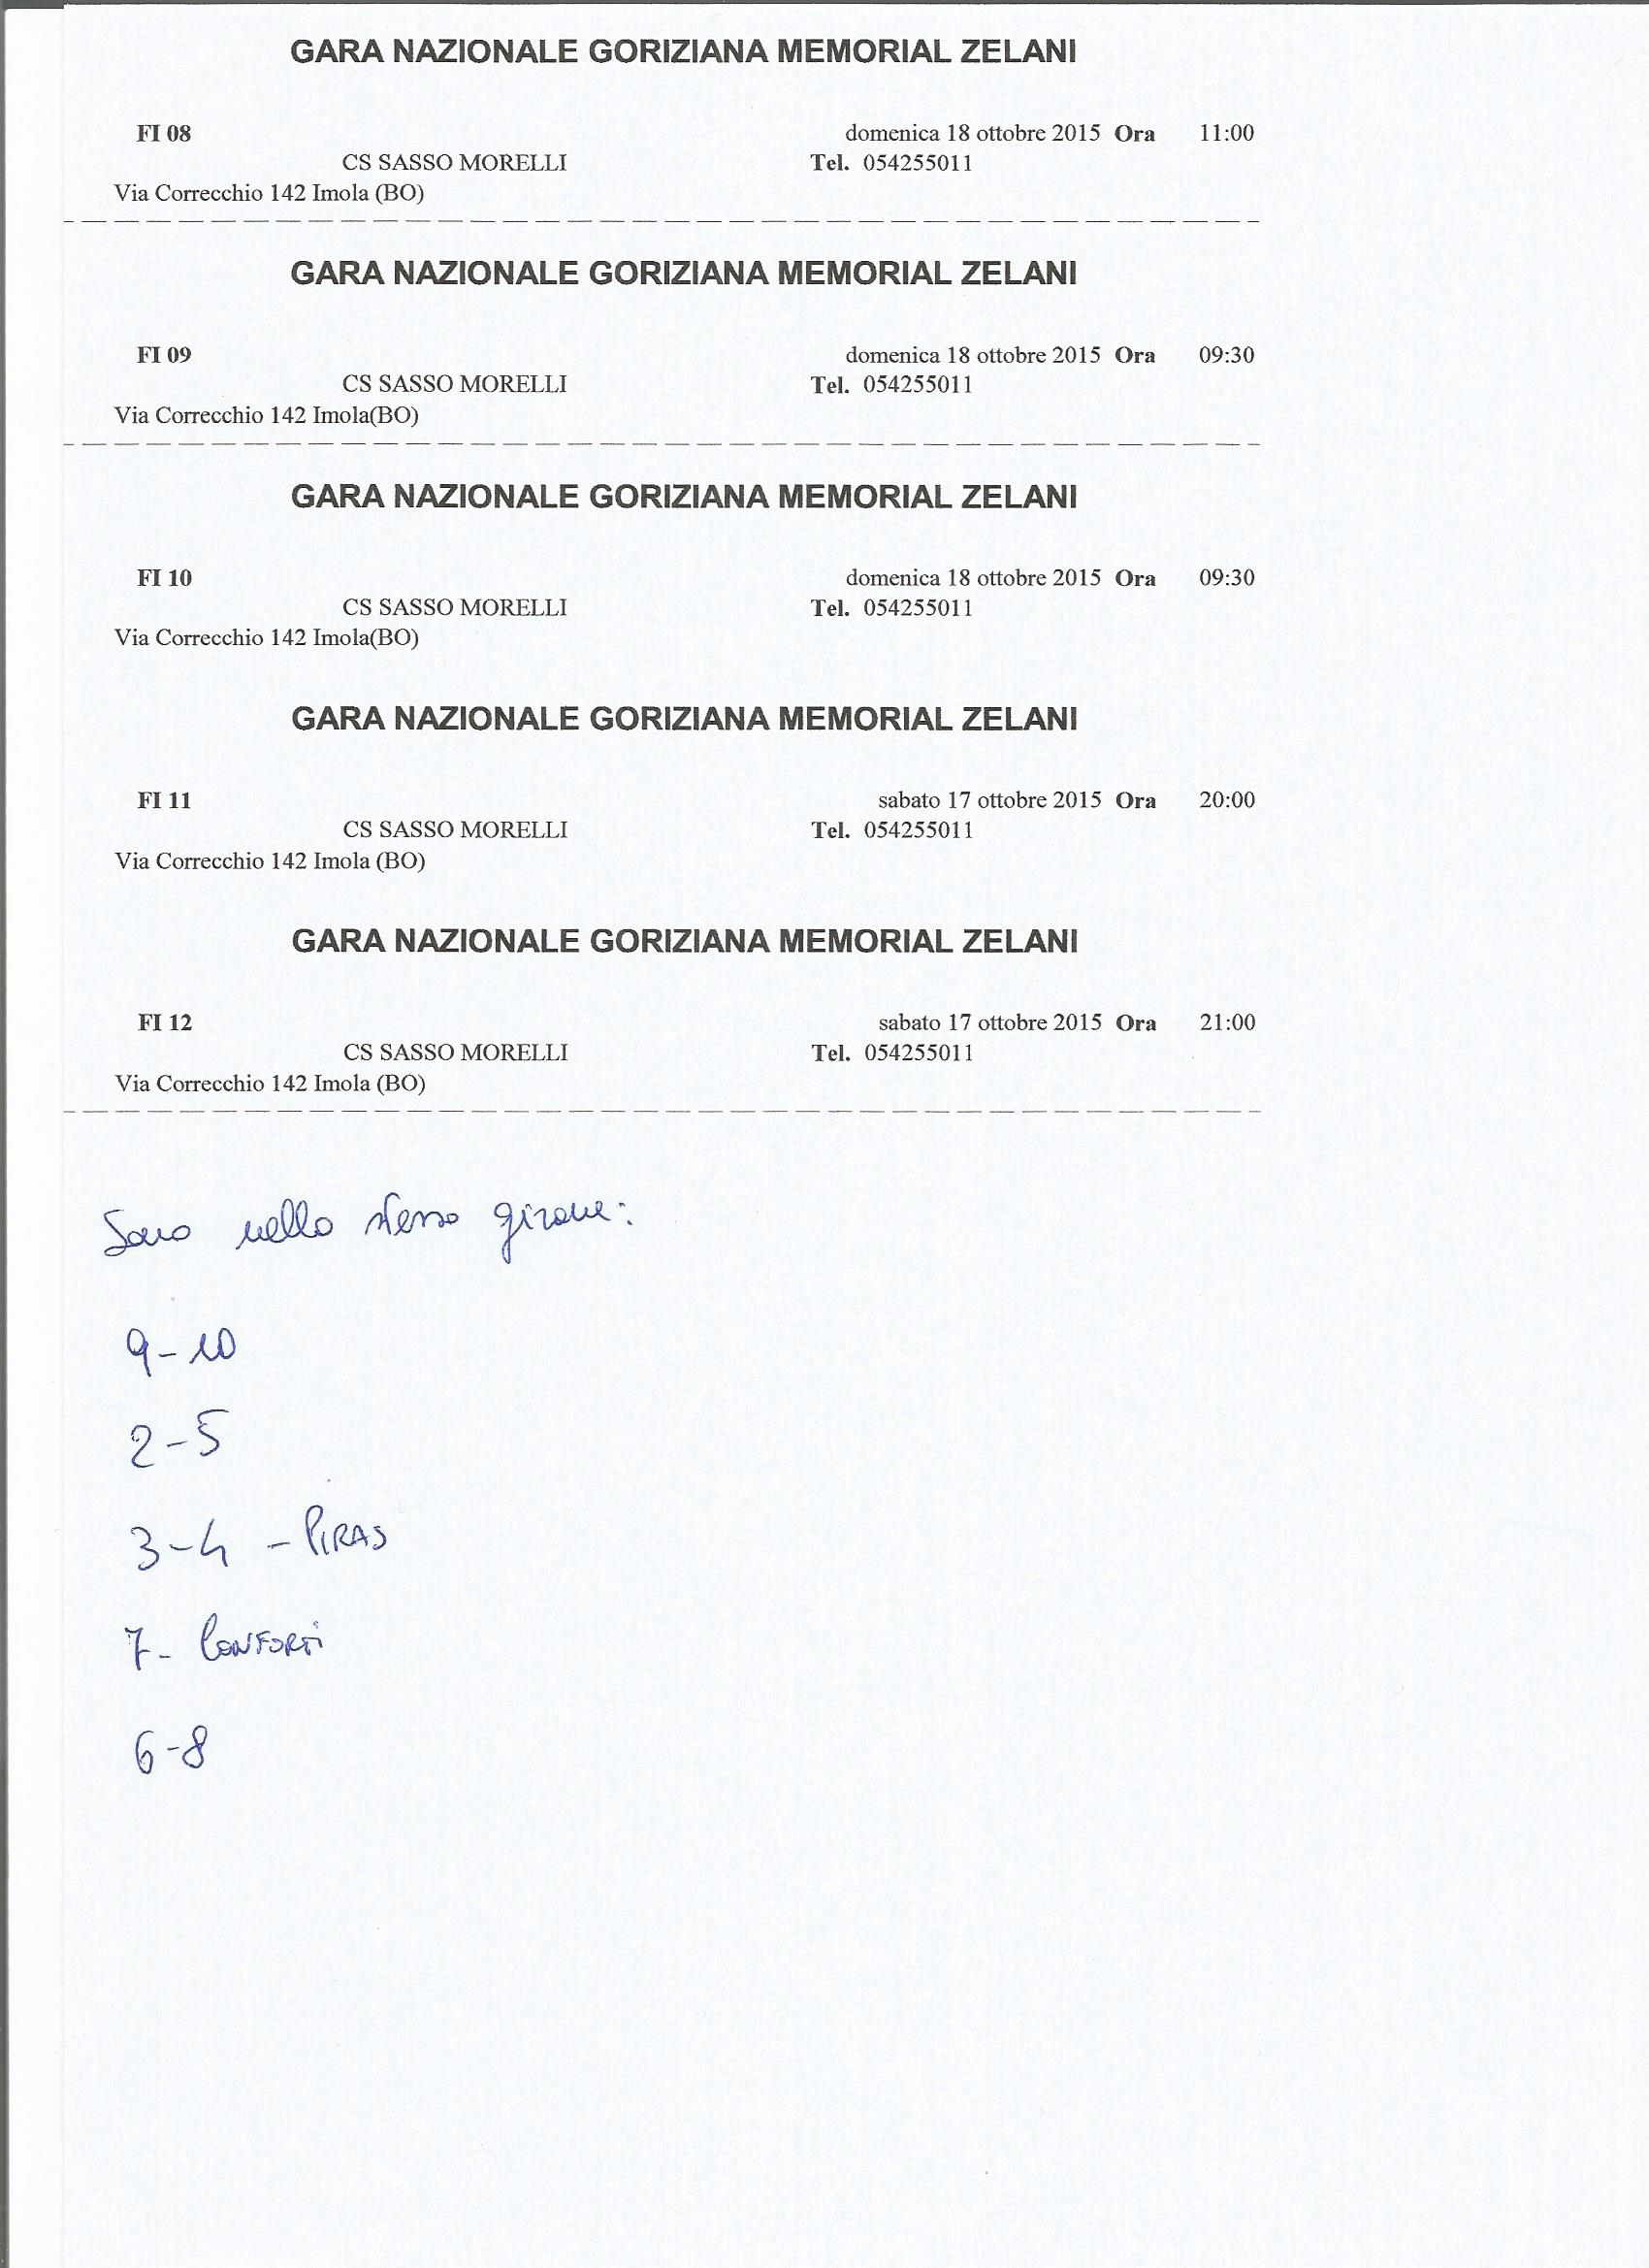 GARA NAZIONALE GORIZIANA MEMORIAL ZELANI
FI 08 domenica 18 ottobre 2015 Ora 11:00
CS SASSO MORELLI Tel. 054255011
Via Correcchio 142 Imola (BO)
GARA NAZIONALE GORIZIANA MEMORIAL ZELANI
FI 09 domenica 18 ottobre 2015 Ora 09:30
CS SASSO MORELLI Tel. 054255011
Via Correcchio 142 Imola(BO)
GARA NAZIONALE GORIZIANA MEMORIAL ZELANI
FI 10 domenica 18 ottobre 2015 Ora 09:30
CS SASSO MORELLI Tel. 054255011
Via Correcchio 142 Imola(BO)
GARA NAZIONALE GORIZIANA MEMORIAL ZELANI
FI 11 sabato 17 ottobre 2015 Ora 20:00
CS SASSO MORELLI Tel. 054255011
Via Correcchio 142 Imola (BO)
GARA NAZIONALE GORIZIANA MEMORIAL ZELANI
FI 12 sabato 17 ottobre 2015 Ora 21:00
CS SASSO MORELLI Tel. 054255011
Via Correcchio 142 Imola (BO)
Sono nello stesso girone:
9-10
2-5
3-4 - PIRAS
7- CONFORTI
6-8